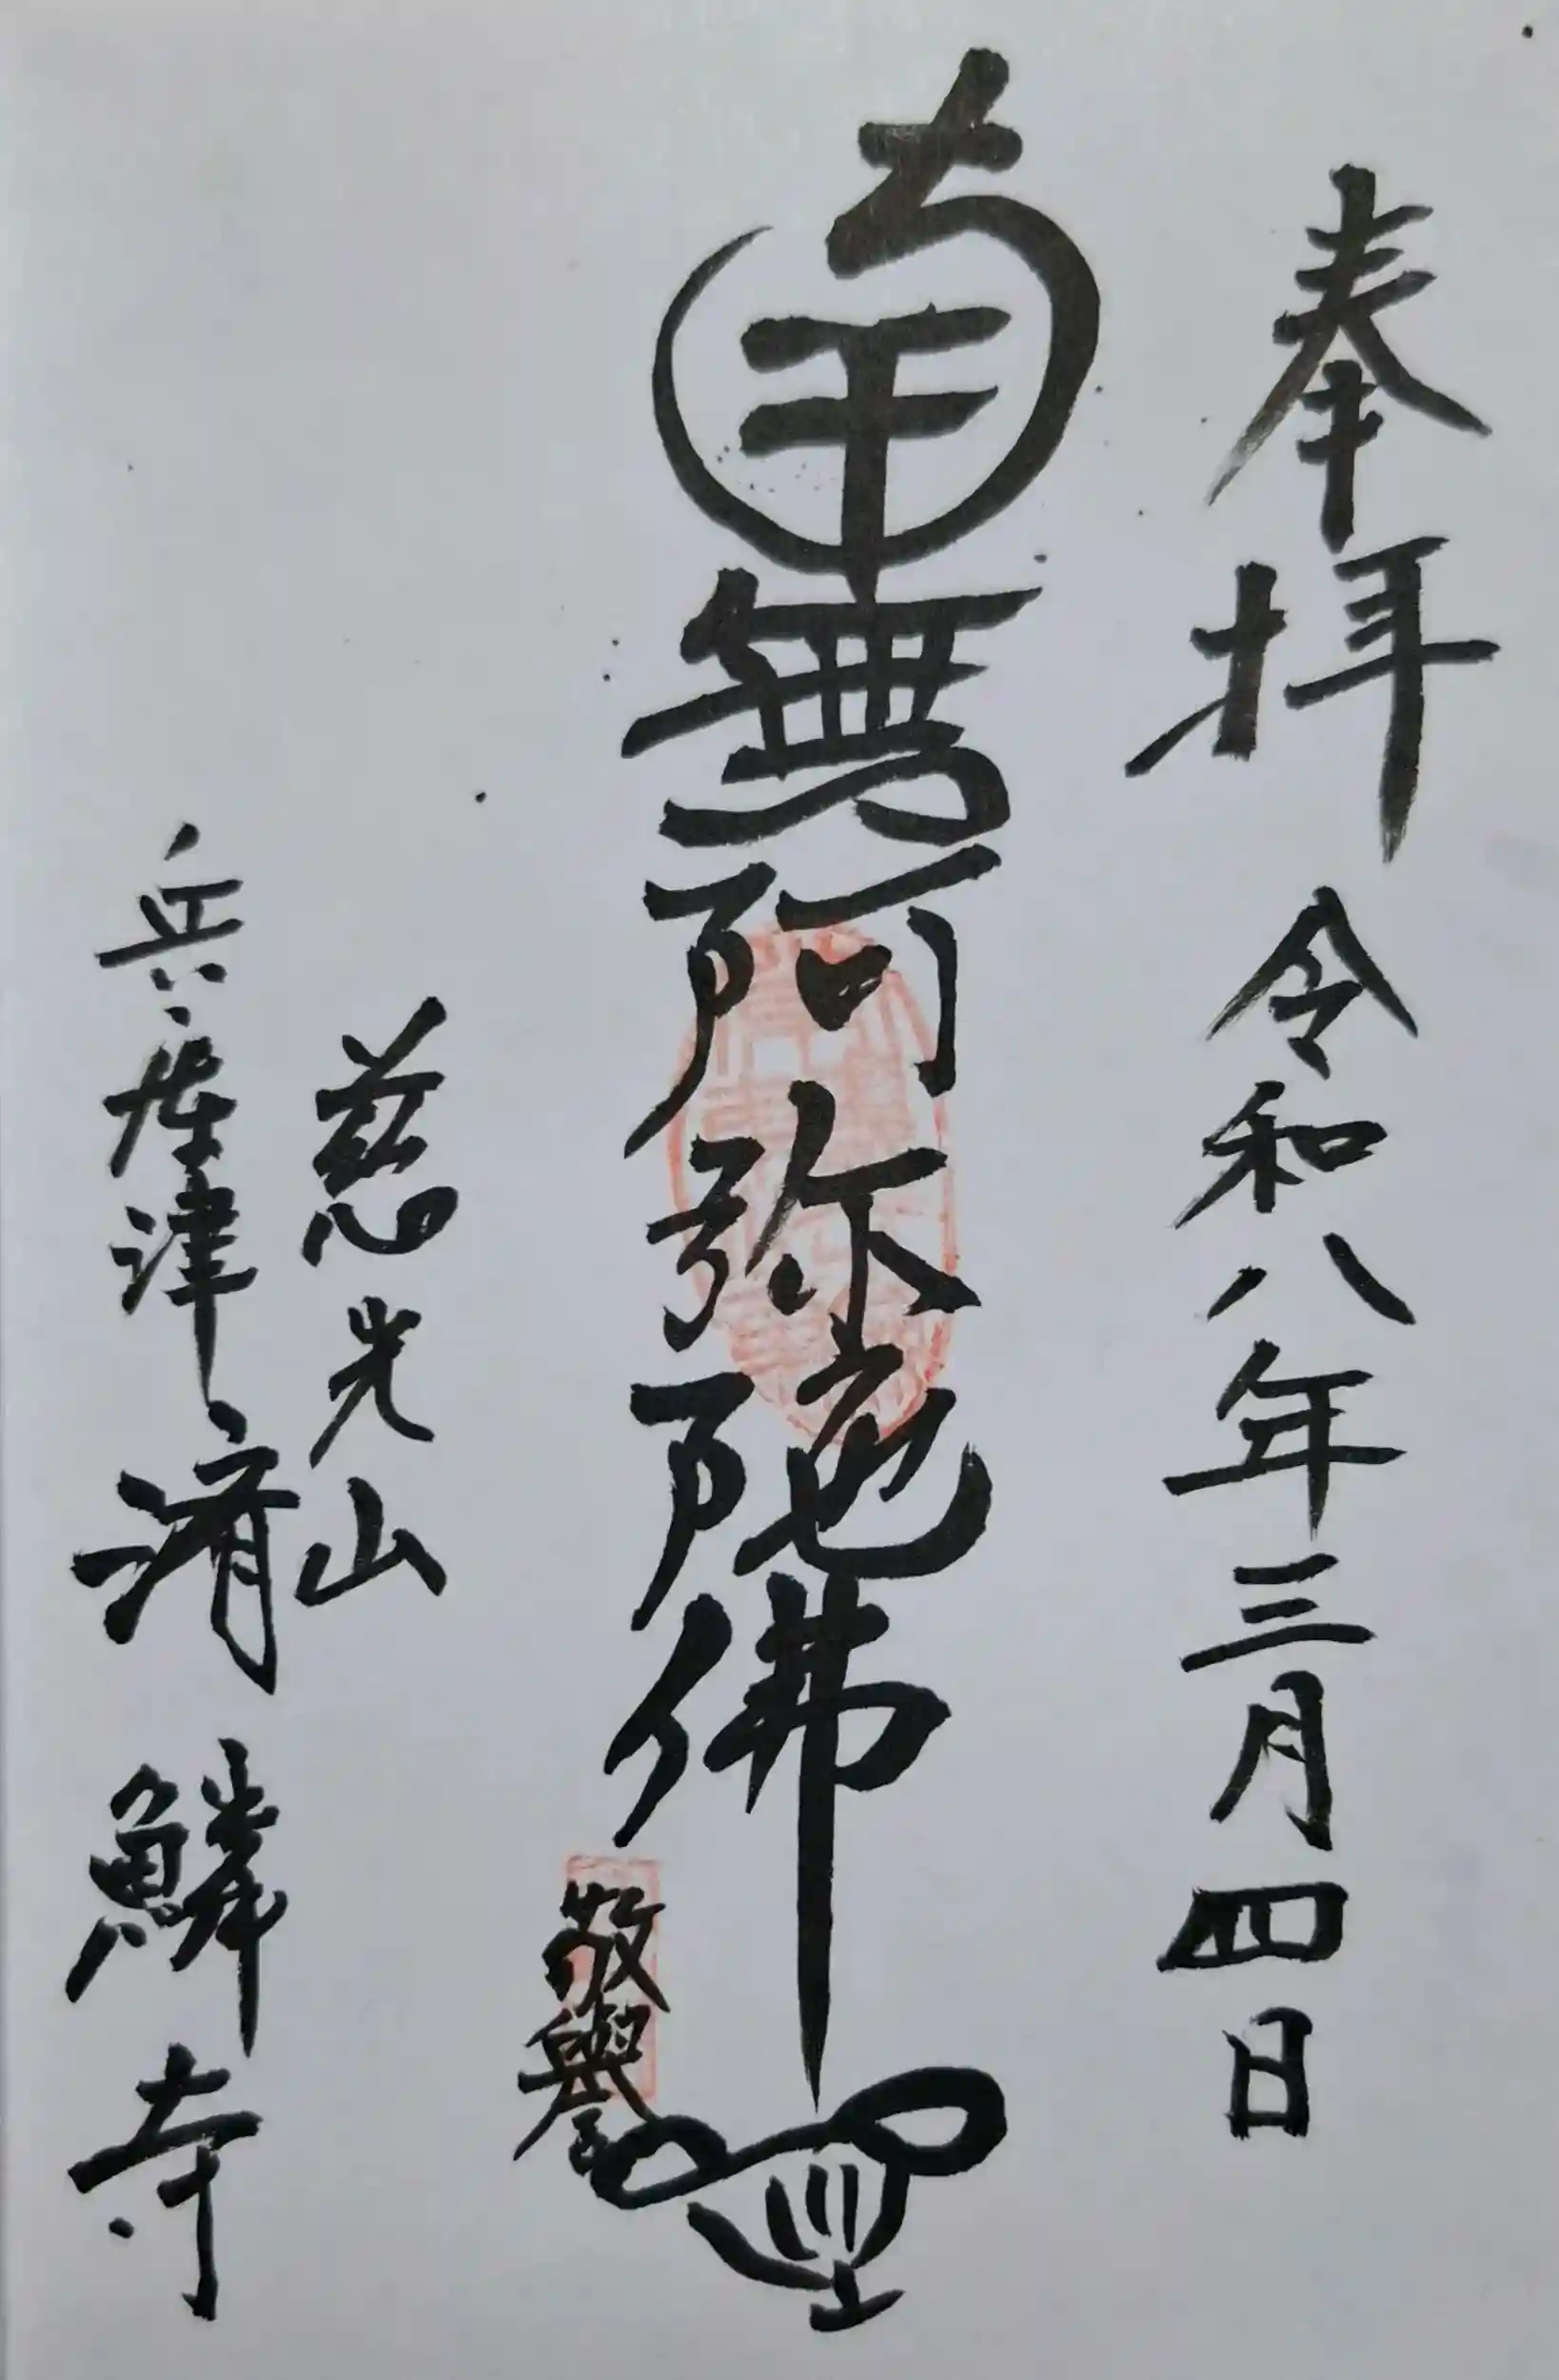 奉拝 令和八年三月四日
南無阿弥陀佛
敬譽
慈光山
兵庫津 濟鱗寺